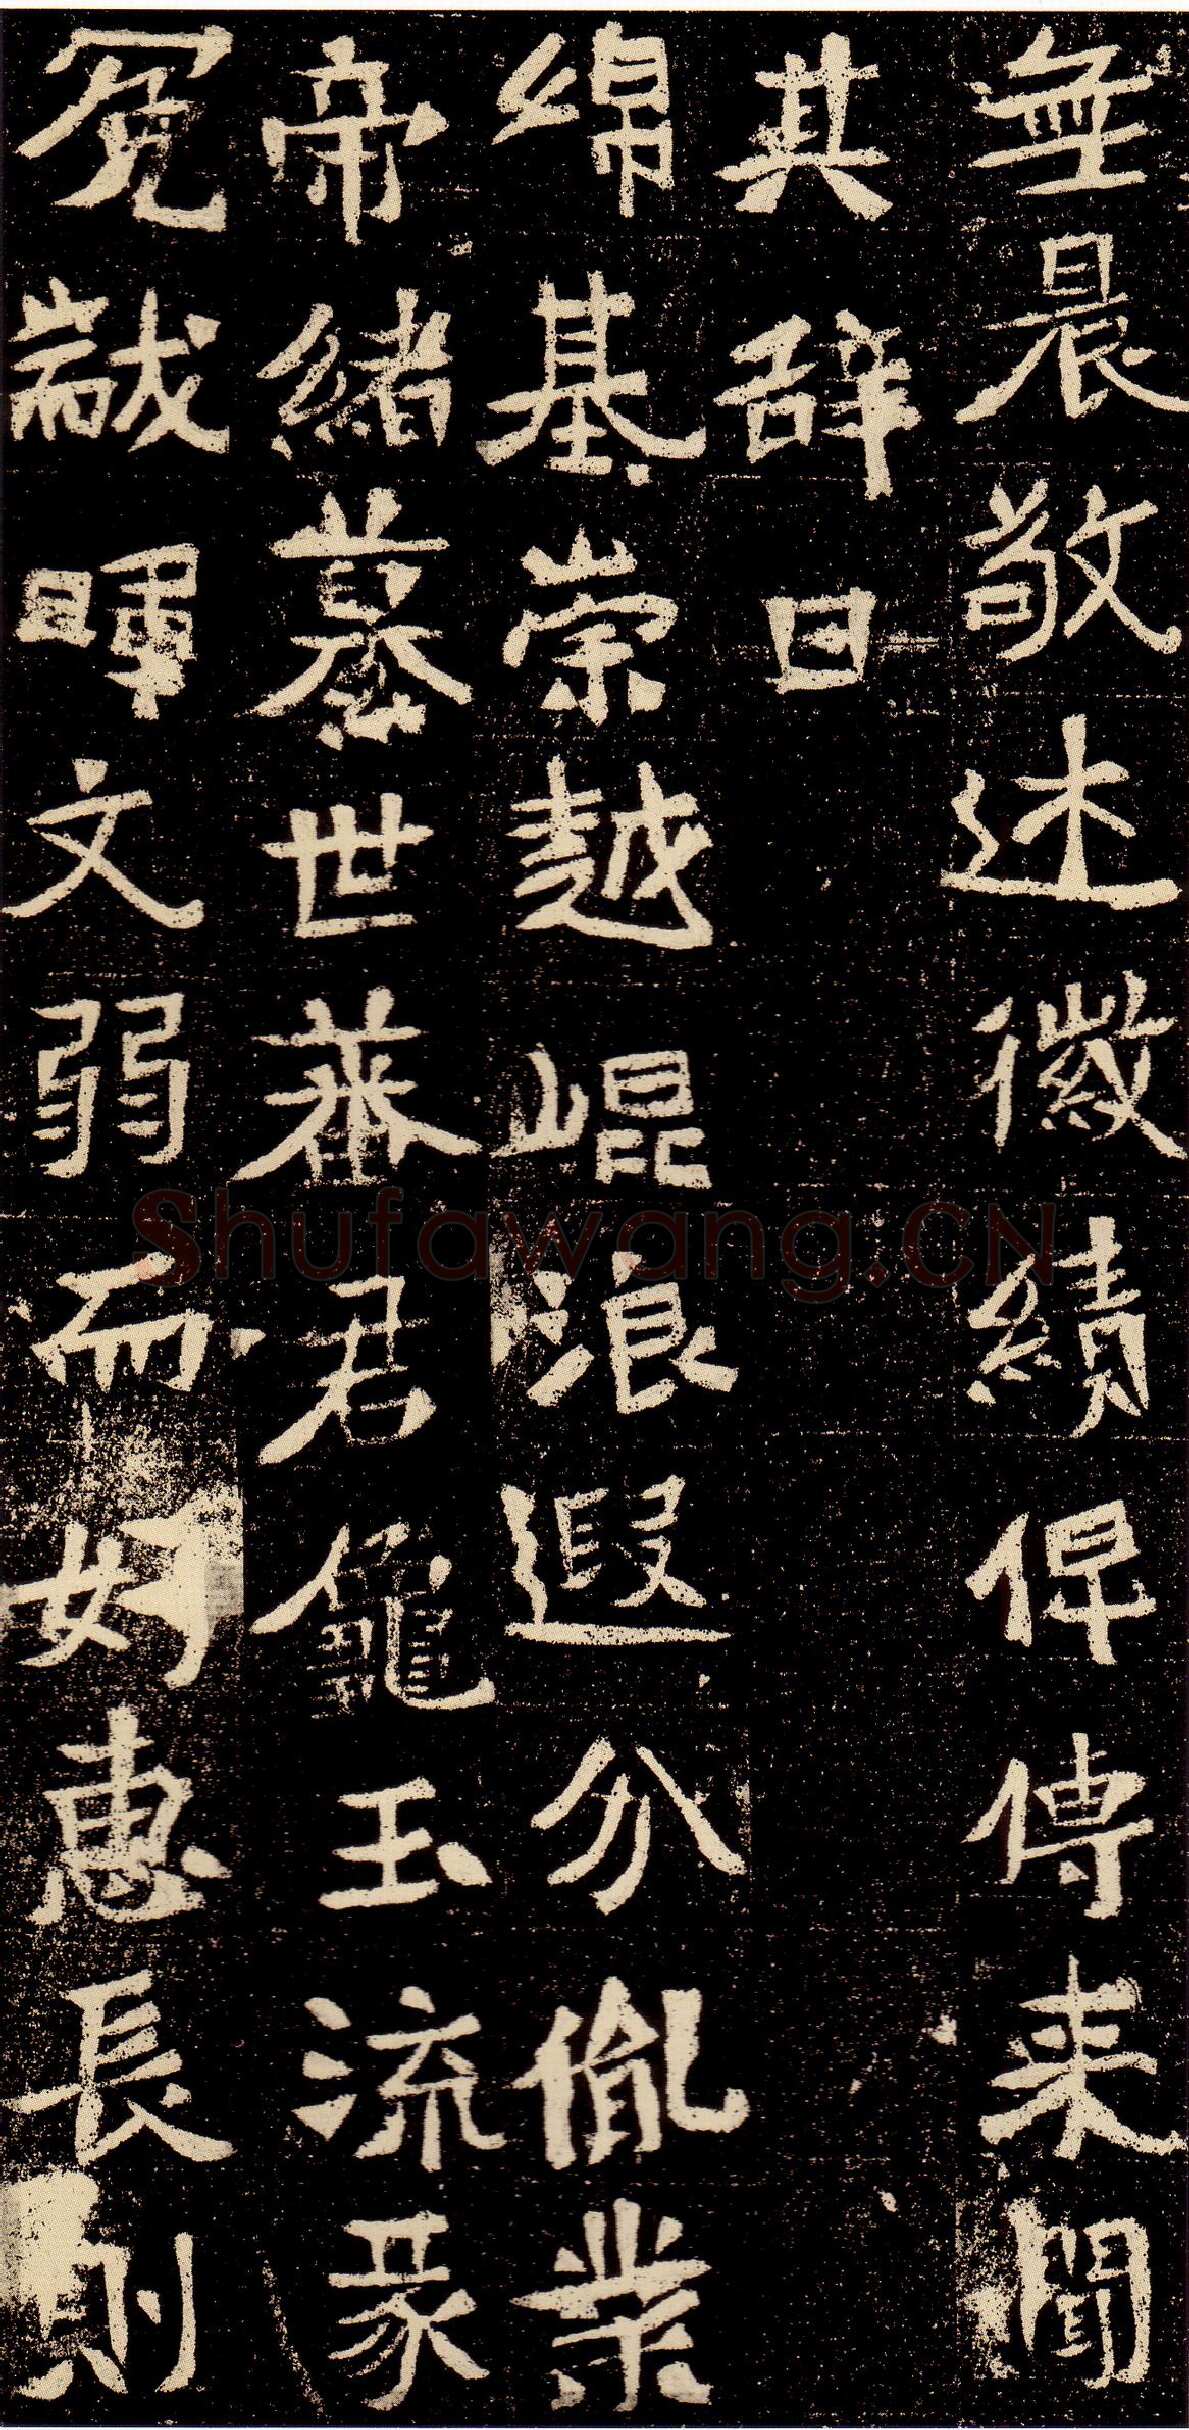 無晨敬述徽績俾傳来聞
其辞曰
綿基崇越崐浪遐分胤業
帝緒慕世蕃君龜玉流彖
冕黻暉文弱而好惠長則
Shufawang.CN